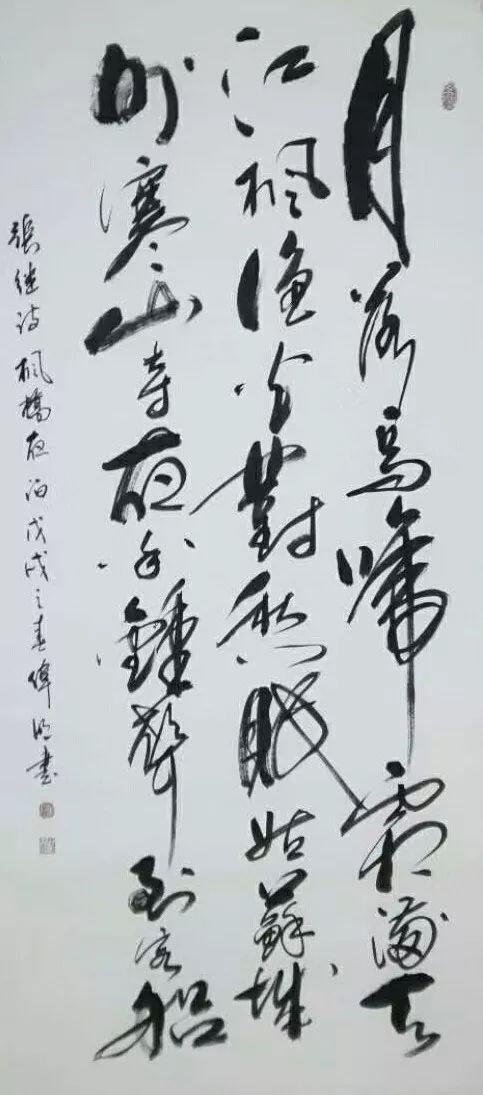 月落烏啼霜滿天
江楓漁火對愁眠姑蘇城
外寒山寺夜半鐘聲到客船
張继诗楓橋夜泊戊戌之春偉明書